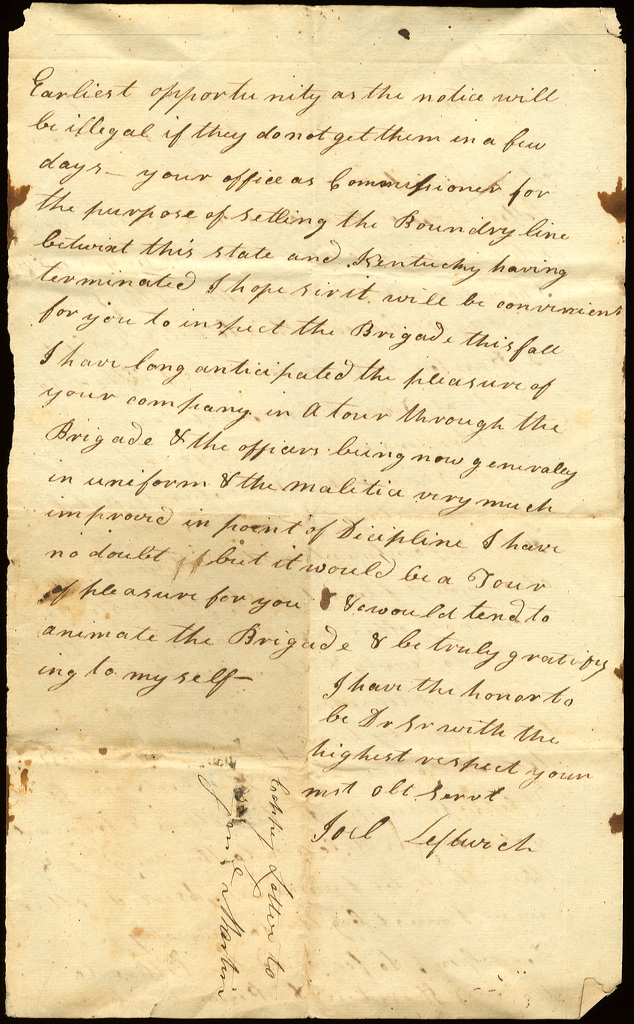 Earliest opportunity as the notice will
be illegal if they do not get them in a few
days – your office as Commissioner for
the purpose of setling the Boundry line
betwixt this state and Kentucky having
terminated I hope sir it will be convenient
for you to inspect the Brigade this fall
I have long anticipated the pleasure of
your company in a tour through the
Brigade & the officers being now generaley
in uniform & the malitia very much
improved in point of Dicipline I have
no doubt but it would be a Tour
of pleasure for you & would tend to
animate the Brigade & be truly gratify
ing to my self –
I have the honor to
be Dr Sr with the
highest respect your
mst obt servt
Joel Leftwich
Coppy Letter to
Martin